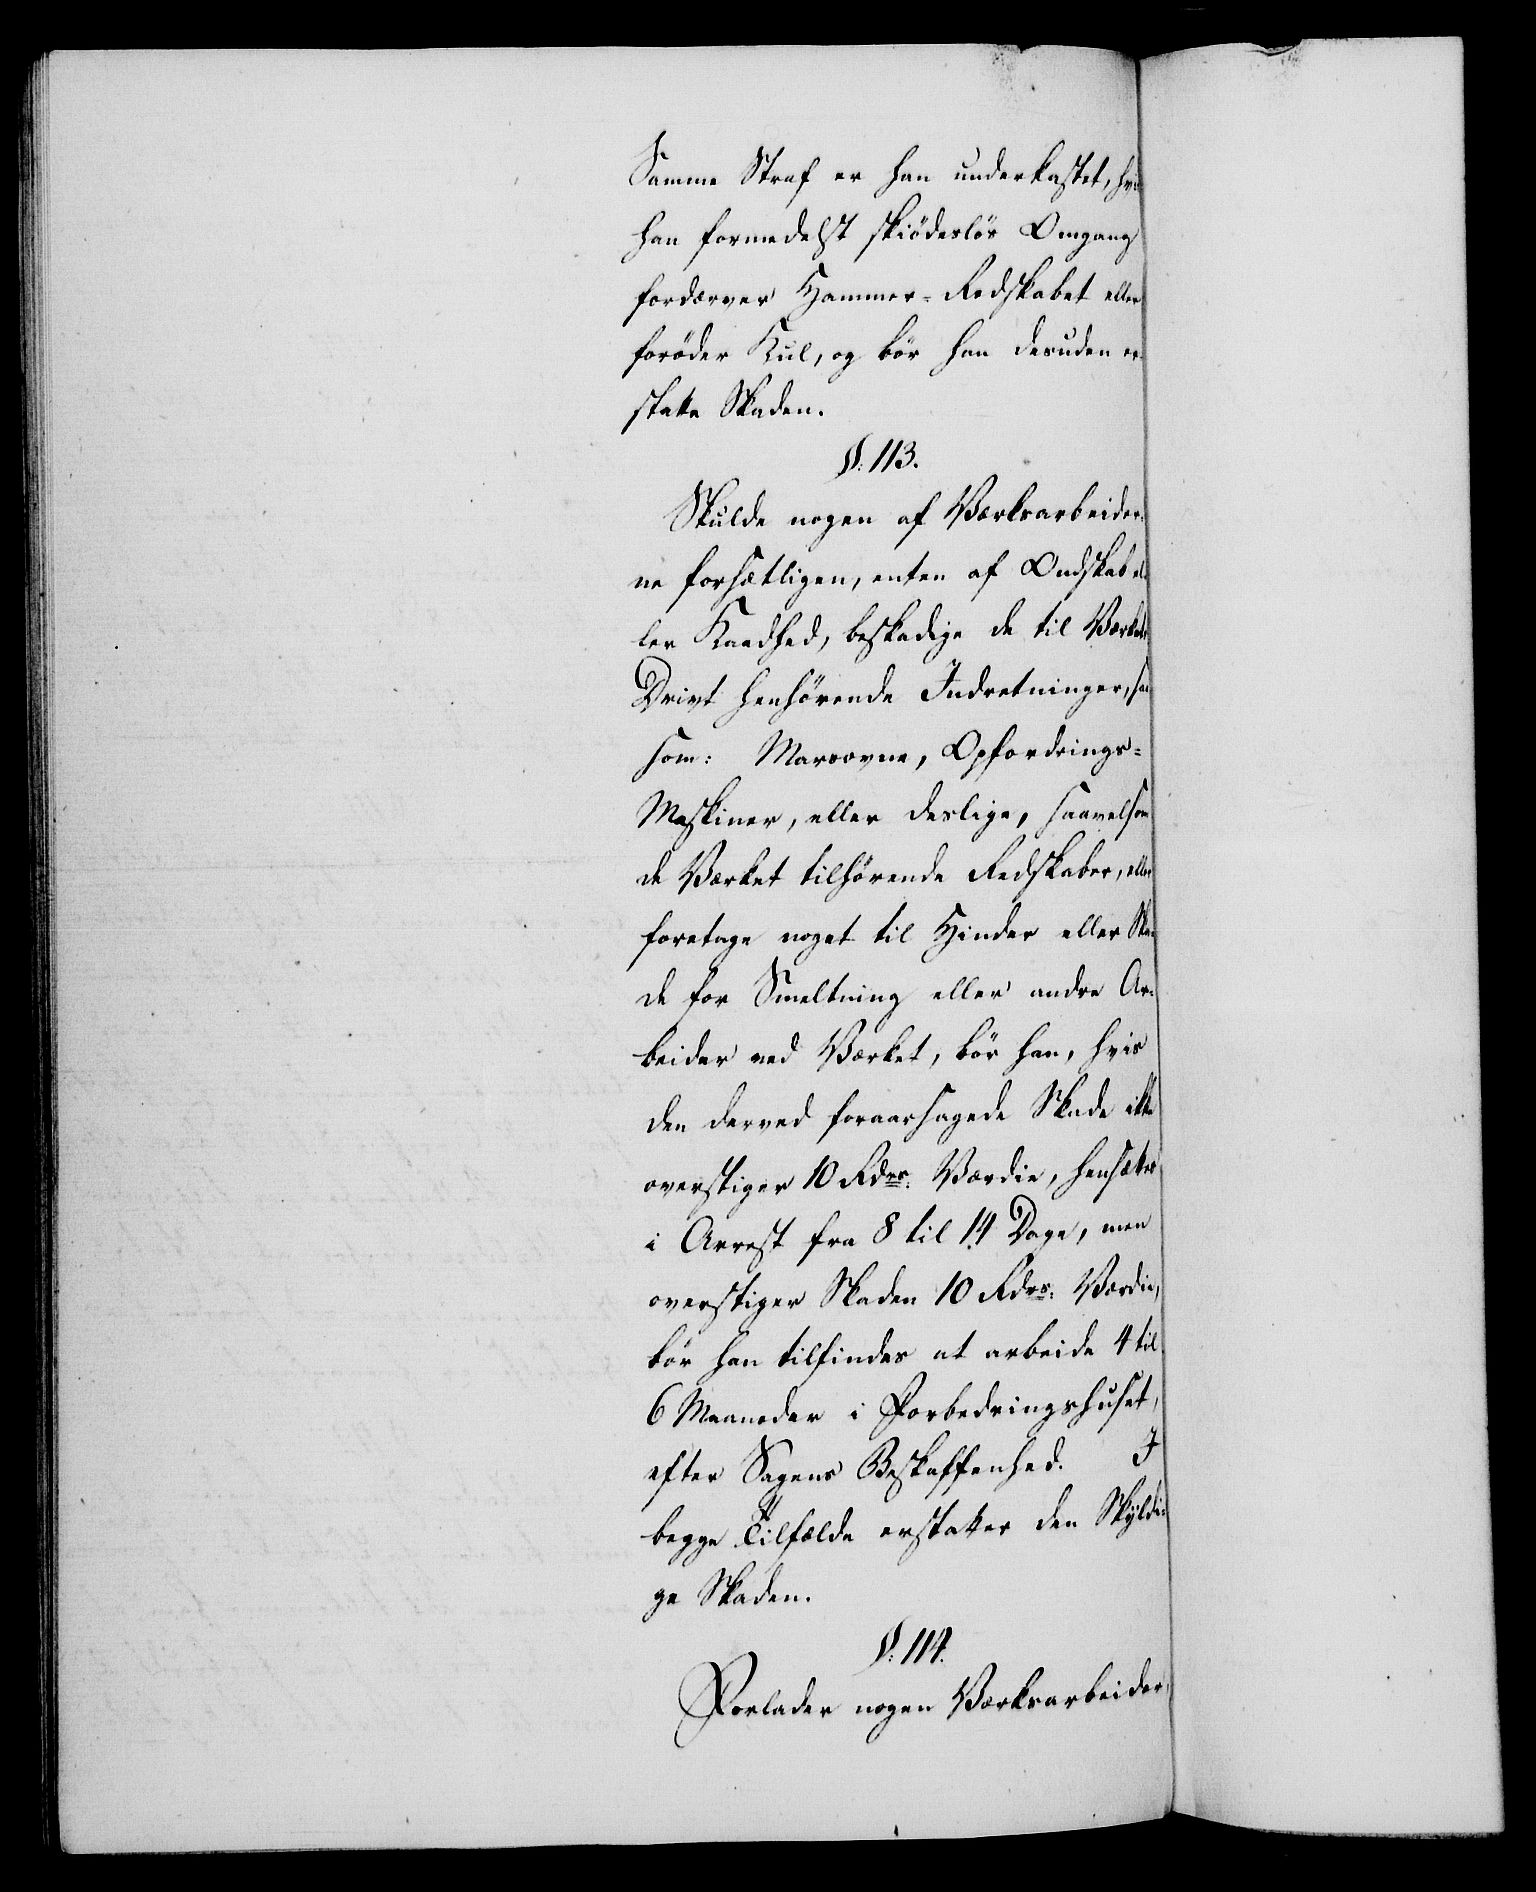 Samme Straf er han underkastet, hvis
han formedelst skiödeslös Omgang
fordærver Hammer-Redskabet eller
foröder Kul, og bör han desuden er-
statte Skaden.
§: 113.
Skulde nogen af Værksarbeider-
ne forsætligen, enten af Ondskab el-
ler Kaadhed, beskadige de til Værkets
Drivt henhörende Indretninger, saa
som: Masovne, Opfordrings-
Maskiner, eller deslige, saavelsom
de Værket tilhörende Redskaber, eller
foretage noget til Hinder eller Ska-
de for Smeltning eller andre Ar-
beider ved Værket, bör han, hvis
den derved foraarsagede Skade ikke
overstiger 10 Rdrs. Værdie, hensættes
i Arrest fra 8 til 14 Dage, men
overstiger Skaden 10 Rdrs. Værdie,
bör han tilfindes at arbeide 4 til
6 Maaneder i Forbedringshuset,
efter Sagens Beskaffenhed. I
begge Tilfælde erstatter den Skyldi-
ge Skaden.
§: 114.
Forlader nogen Værksarbeider,